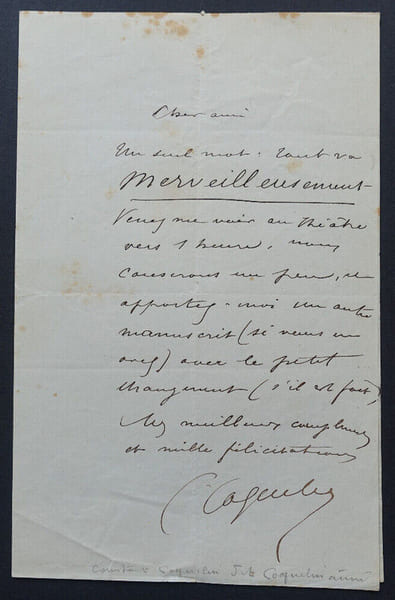 Cher ami
Un seul mot. Tout va
merveilleusement
Venez me voir au théâtre
vers 1 heure, nous
causerons un peu, et
apportez-moi un autre
manuscrit (si vous en
avez) avec le petit
changement (s'il est fait)
Mes meilleurs compliments
et mille félicitations
C Coquelin
Constant Coquelin dit Coquelin aîné